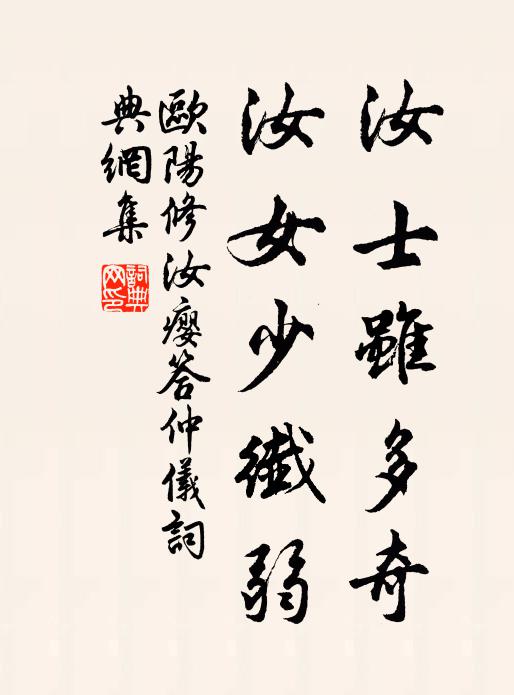 汝士雖多奇
汝女少纖弱
歐陽修汝癭答仲儀詞
典網集
詞典
网印